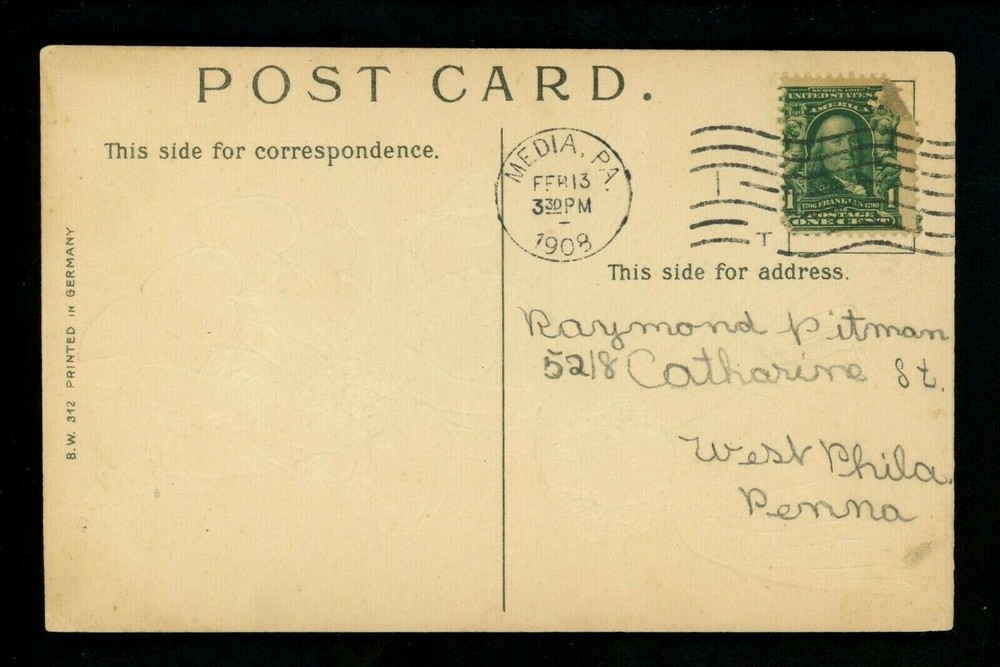 POST CARD.
This side for correspondence.
MEDIA, PA.
FEB 13
3 30 PM
1908
T
SERIES 1902
UNITED STATES
AMERICA
1 1
1706 FRANKLIN 1790
POSTAGE
ONE CENT
This side for address.
Raymond Pitman
5218 Catharine St.
West Phila.
Penna
B.W. 312 PRINTED IN GERMANY